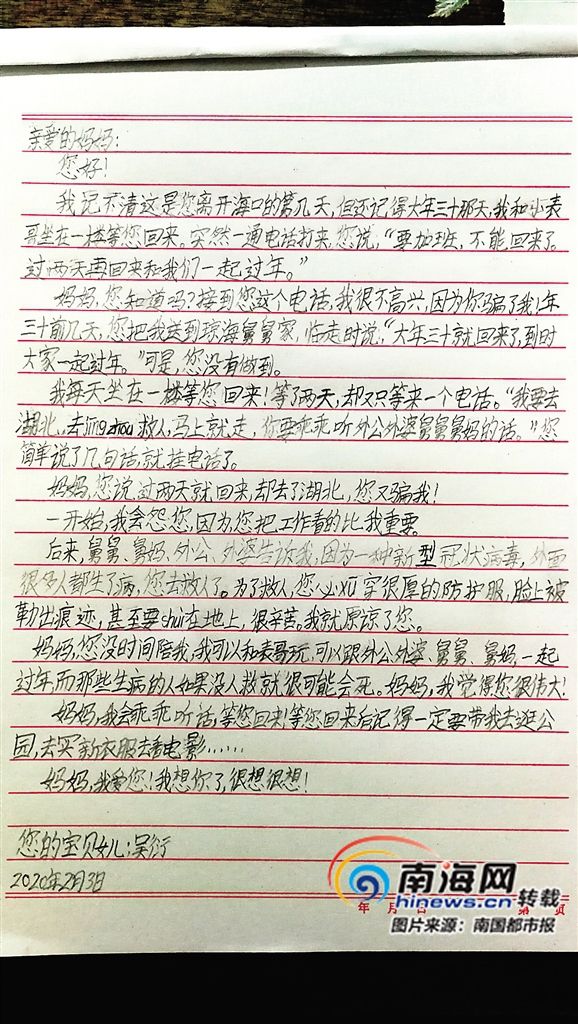 亲爱的妈妈:
您好!
我记不清这是您离开海口的第几天,但还记得大年三十那天,我和小表
哥坐在一楼等您回来。突然一通电话打来,您说,“要加班,不能回来了。
过两天再回来和我们一起过年。”
妈妈,您知道吗?接到您这个电话,我很不高兴,因为你骗了我!年
三十前几天,您把我送到琼海舅舅家,临走时说,“大年三十就回来了,到时
大家一起过年。”可是,您没有做到。
我每天坐在一楼等您回来!等了两天,却又只等来一个电话。“我要去
湖北,去jīngzhou救人,马上就走,你要乖乖听外公外婆舅舅舅妈的话。”您
简单说了几句话,就挂电话了。
妈妈,您说,过两天就回来,却去了湖北,您又骗我!
一开始,我会怨您,因为您把工作看的比我重要。
后来,舅舅、舅妈、外公、外婆告诉我,因为一种新型冠状病毒,外面
很多人都生了病,您去救人了。为了救人,您必xū穿很厚的防护服,脸上被
勒出痕迹,甚至要shuì在地上,很辛苦。我就原谅了您。
妈妈,您没时间陪我,我可以和表哥玩,可以跟外公外婆、舅舅、舅妈一起
过年,而那些生病的人如果没人救就很可能会死。妈妈,我觉得您很伟大!
妈妈,我会乖乖听话,等您回来!等您回来后记得一定要带我去逛公
园,去买新衣服去看电影……
妈妈,我爱您!我想你了,很想很想!
您的宝贝女儿:吴衍
2020年2月3日
年 月 日 第 页
南海网
hinews.cn 转载
图片来源:南国都市报